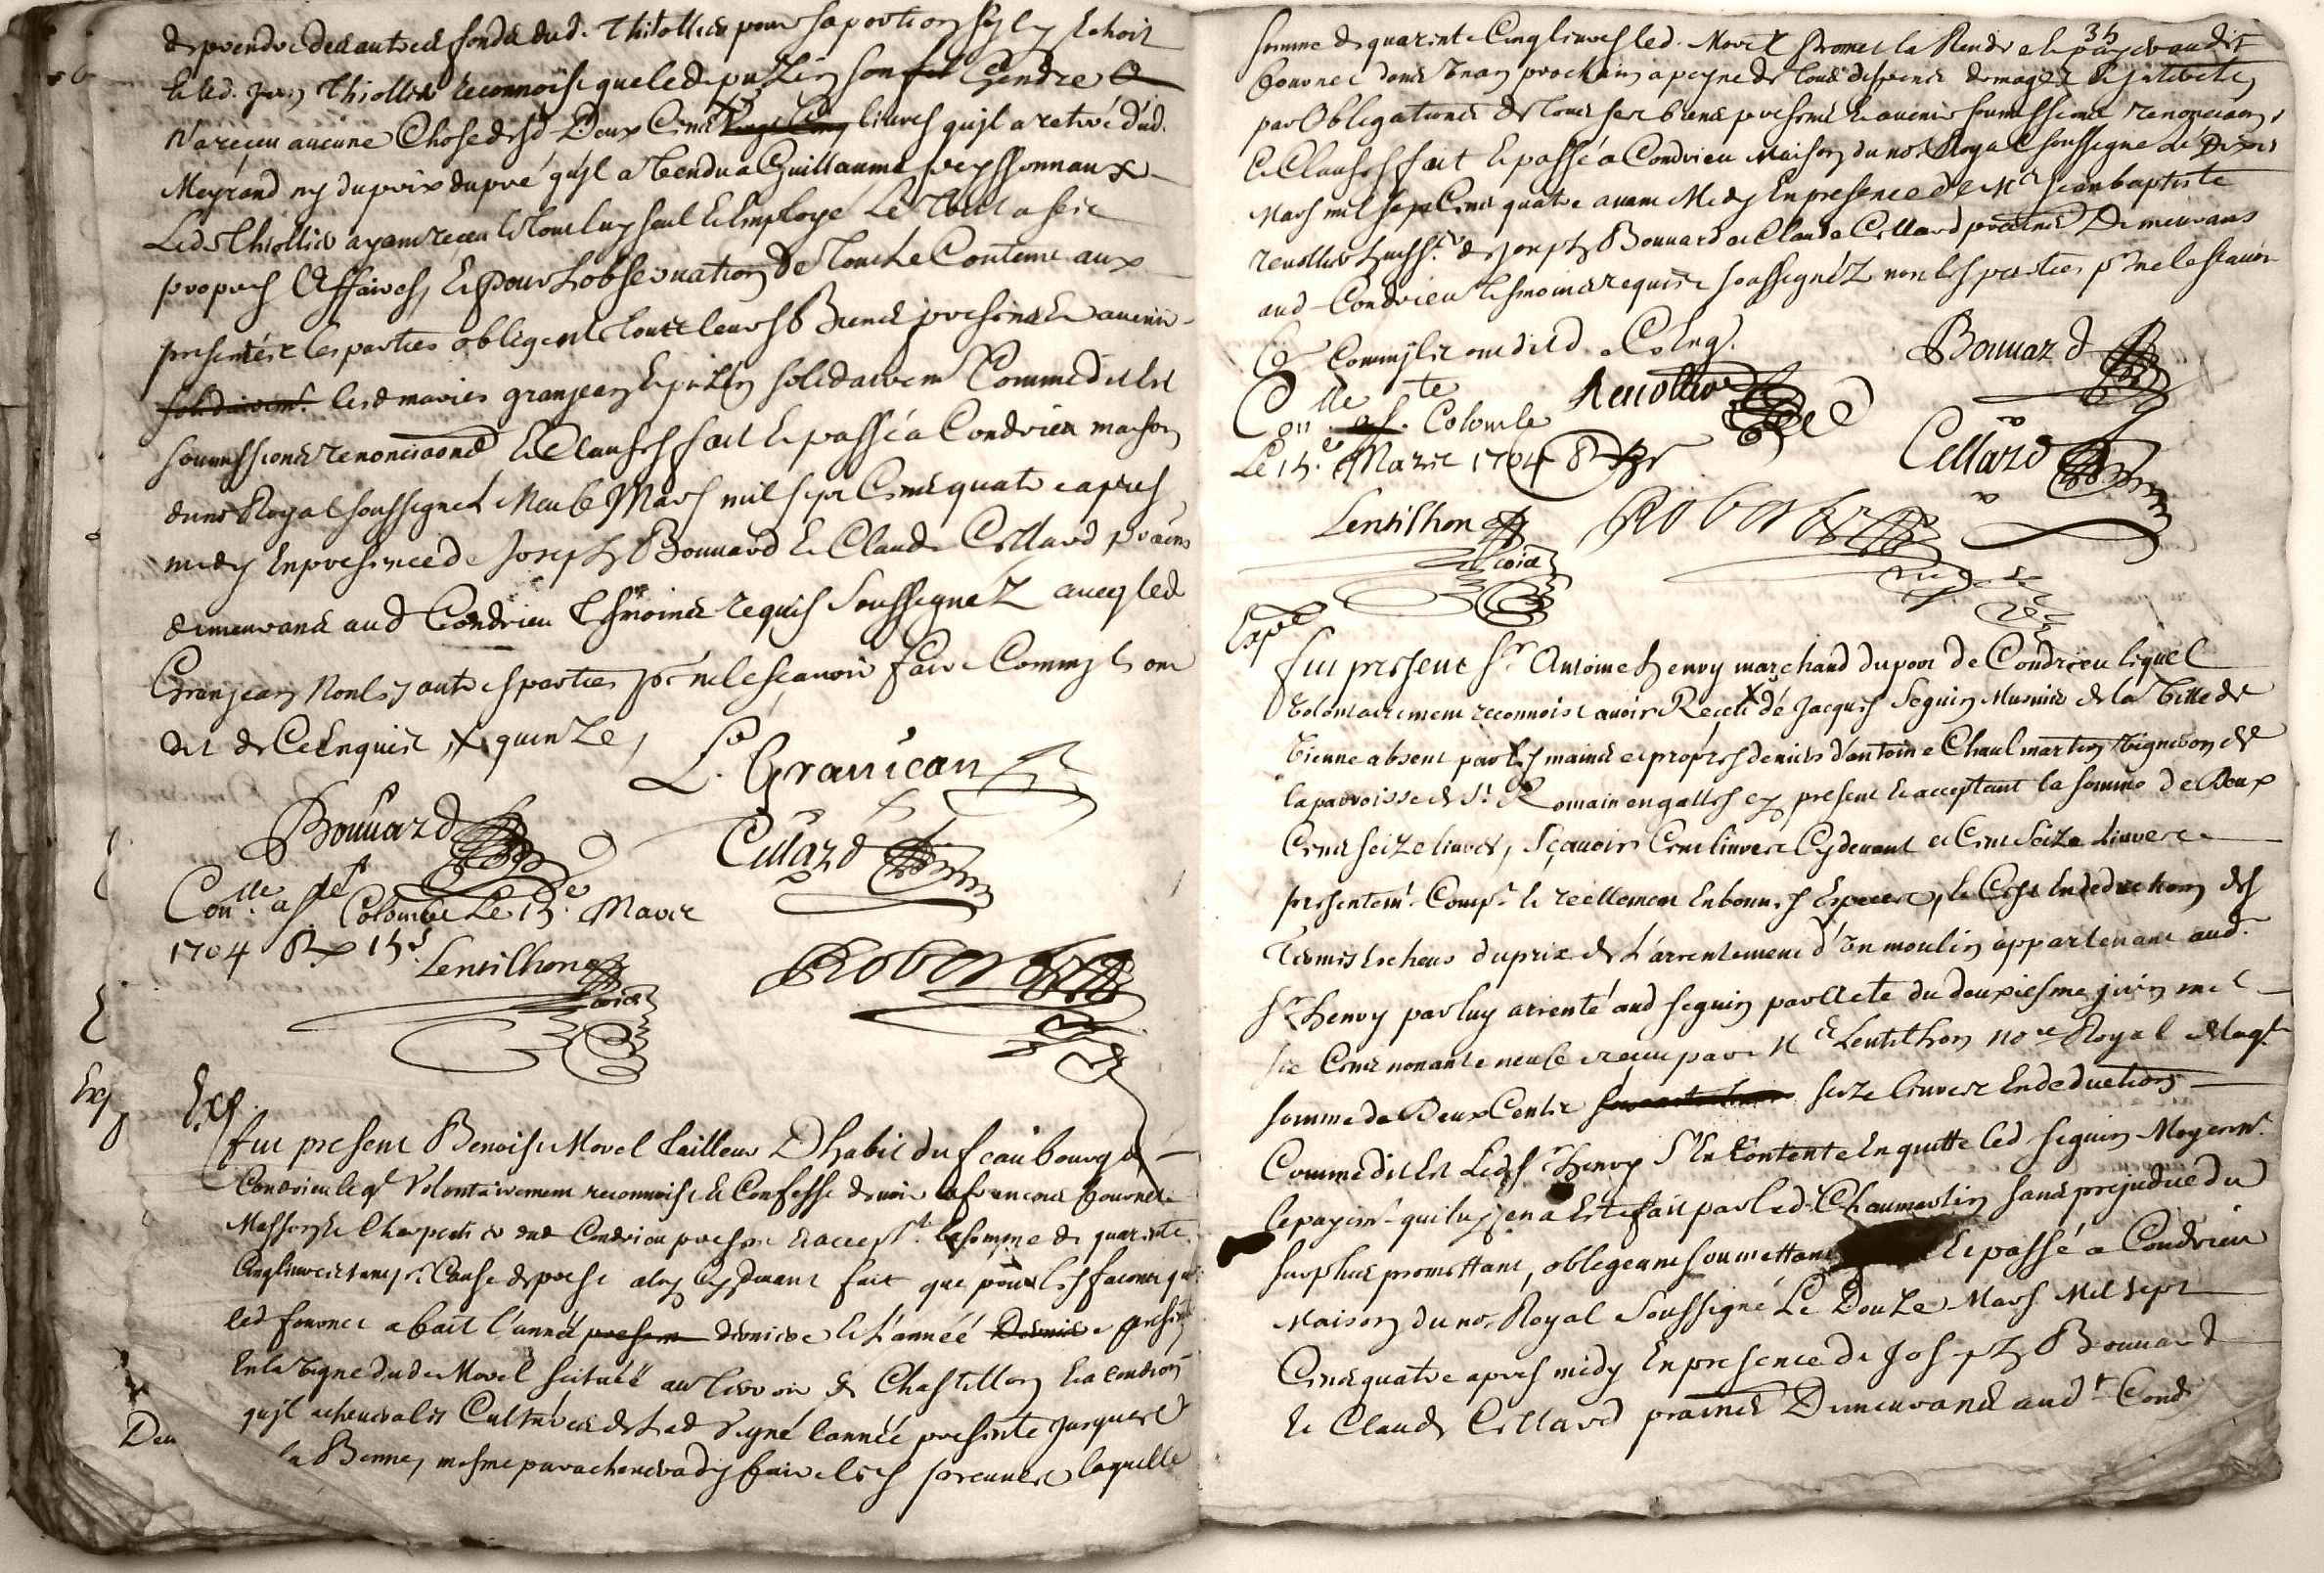 de prendre des autres fonds dud. Thiollier pour sa portion
et led. Jean Thiollier reconnoist que led. puzin son gendre
n'a receu aucune chose desd. Deux Cens livres qu'il a retiré dud.
Meyrand ny du prix du pré qu'jl a vendu a Guillaume veyssonnaux
Led. Thiollier ayant receu le tout luy seul et Employé Le tout a ses
propres affaires, Et pour Lobservation de tout Le Contenu aux
presentes les parties obligent tous leurs Biens presens et avenir
solidairemt. lesd. maries granjean et puzin solidairemt. Comme dit est
soumissions renonciaons Et Clauses fait et passé a Condrieu maison
du no.re Royal soussigné Le Neuf Mars mil sept Cens quatre apres
midy En presence de Joseph Bouvard et Claude Cellard praticiens
demeurans aud. Condrieu tesmoins requis soussignez avecq led.
Granjean Non les autres parties pr. ne le scavoir faire Comme ils ont
dit de Ce Enquis, X quinze,
L. Granican
Bouuard
Cellard
Con.lle a s.te Colombe Le 15.e Mars
1704 Rx 15 s.
Lentilhon
Robert
Exp.
Exp.
fut present Benoist Morel tailleur D'habit du feaubourg de
Condrieu leql. Volontairement reconnoist et Confesse devoir a francois fournel
Masson et Charpentier dud. Condrieu present et accept.t la somme de quarante
Cinq livres tant pr. Cause de prest a luy Cy devant fait que pour les facons que
led. fournel a fait l'année presente derniere et L'année Derniere presente
En la vigne dud. Morel scituée au terroir de Chastillon et a condi.on
qu'jl achevera les Cultures de lad. vigne l'année presente jusques a
la Benne, mesme parachevera d'y faire les preunes laquelle
35
somme de quarente Cinq livres led. Morel promet la Rendre et payer audit
fournel dans un an prochain a peyne de tous despens domages et jnterets
par obligations de tous ses biens presens et avenir soumissions renonciaons
et Clauses fait et passé a Condrieu Maison du no.re Royal soussigné Le Dix
Mars mil sept Cens quatre avant Midy En presence de M.e Jean baptiste
huiss.r de Joseph Bouvard et Claude Cellard praticiens Demeurans
aud. Condrieu tesmoins requis soussignéz non les parties pr. ne le scavoir
Comme ils ont dit de Ce Enq.
Bouuard
Con.lle a s.te Colombe
Le 15.e Mars 1704 Rx
Cellard
Lentilhon
Robert
Exp.e
fut present s.r Antoine henry marchand du port de Condrieu liquel
volontairement reconnoist avoir Receu de Jacques Seguin Musnier de la ville de
Vienne absent par les mains et propres deniers d'antoine Chaulmartin vigneron de
la parroisse de St. Romain en galles cy present et acceptant la somme de Deux
Cens seize livres, sçavoir Cent livres Cy devant et Cent seize Livres
presentemt. Compt. et reellement En bonnes Especes, et Cest En deduction des
termes Escheus du prix de L'arrentement d'un moulin appartenant aud.
s.r henry par luy arrenté aud. seguin par Acte du deuxiesme juin mil
six Cens nonante neuf receu par M.e Lentilhon no.re Royal de laq.le
somme de Deux Cents seize livres En deduction
Comme dit est Led. s.r henry s'En Contente En quitte led. seguin Moyenn.t
le payem.t qui luy en a Esté fait par led. Chaumartin sans prejudice du
surplus promettant, obligeant soumettant et passé a Condrieu
Maison du no.re Royal Soussigné Le Douze Mars Mil sept
Cens quatre apres midy En presence de Joseph Bouvard
et Claude Cellard praticiens Demeurans aud.t Cond